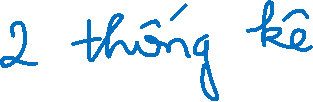 2 thống kê